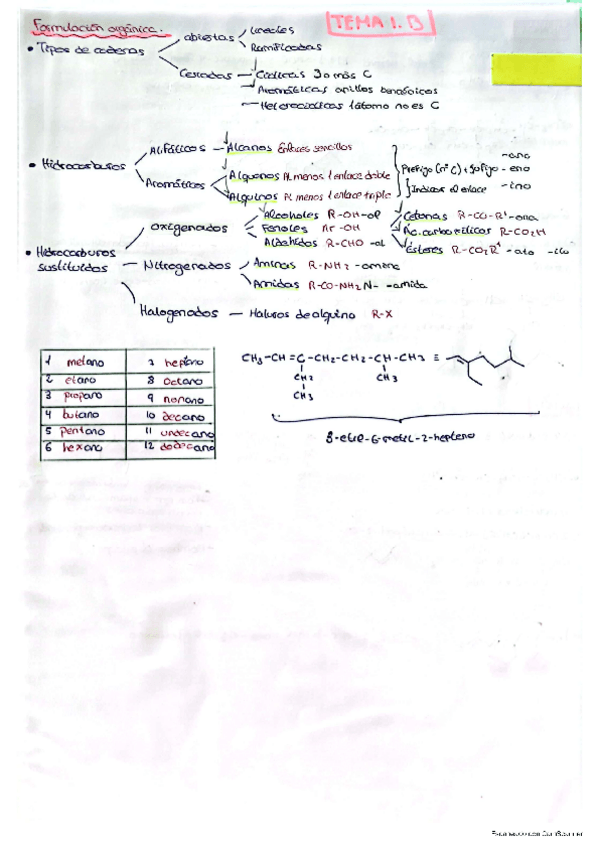 Formulación orgánica.
TEMA 1.B
• Tipos de cadenas
abiertas
Lineales
Ramificadas
Cerradas
Cíclicas 3 o más C
Aromáticas anillos bencénicos
Heterocíclicas 1 átomo no es C
• Hidrocarburos
Alifáticos
Aromáticos
Alcanos Enlaces sencillos
Alquenos Al menos 1 enlace doble
Alquinos Al menos 1 enlace triple
Prefijo (nº C) + Sufijo
Indicar el enlace
-ano
-eno
-ino
• Hidrocarburos sustituidos
Oxigenados
Alcoholes R-OH -ol
Fenoles Ar-OH
Aldehídos R-CHO -al
Cetonas R-CO-R' -ona
Ác. carboxílicos R-CO2H
Ésteres R-CO2R' -ato -ilo
Nitrogenados
Aminas R-NH2 -amina
Amidas R-CO-NH2 N- -amida
Halogenados
Haluros de alquino R-X
1 metano 7 heptano
2 etano 8 octano
3 propano 9 nonano
4 butano 10 decano
5 pentano 11 undecano
6 hexano 12 dodecano
CH3-CH=C-CH2-CH2-CH-CH3 ≡
CH2 CH3
CH3
3-etil-6-metil-2-hepteno
Escaneado con CamScanner